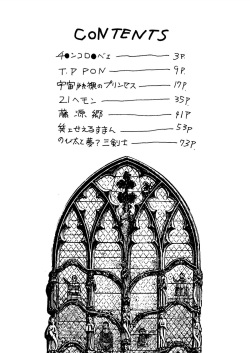 CONTENTS
4●ンコロ●ベェ — 3P.
T.P PON — 9P.
宇宙船製のプリンセス — 17P.
21ヘモン — 35P.
藤源郷 — 41P
笑ゥせぇるすまん — 53P
のび太と夢?三剣士 — 73P.